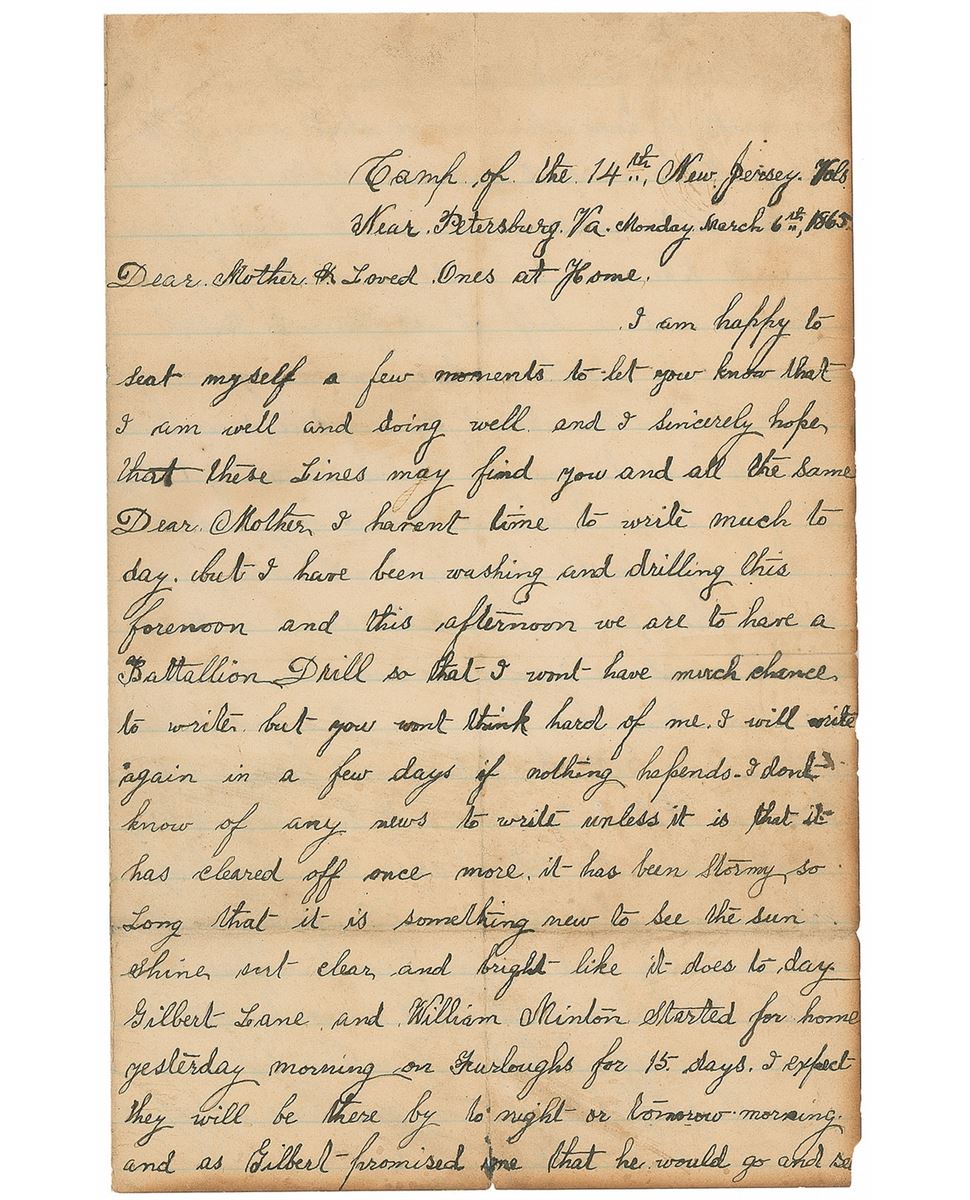 Camp of the 14th, New Jersey. Vols
Near Petersburg. Va. Monday March 6th, 1865
Dear Mother & Loved Ones at Home.
I am happy to
seat myself a few moments to let you know that
I am well and doing well and I sincerely hope
that these Lines may find you and all the same
Dear Mother I havent time to write much to
day. but I have been washing and drilling this
forenoon and this afternoon we are to have a
Battallion Drill so that I wont have much chance
to write but you wont think hard of me. I will write
again in a few days if nothing hapends. I dont
know of any news to write unless it is that it
has cleared off once more. it has been Stormy so
Long that it is something new to see the sun
shine out clear and bright like it does to day
Gilbert Lane and William Minton Started for home
yesterday morning on Furloughs for 15 days. I expect
they will be there by to night or tomorow morning.
and as Gilbert promised me that he would go and se